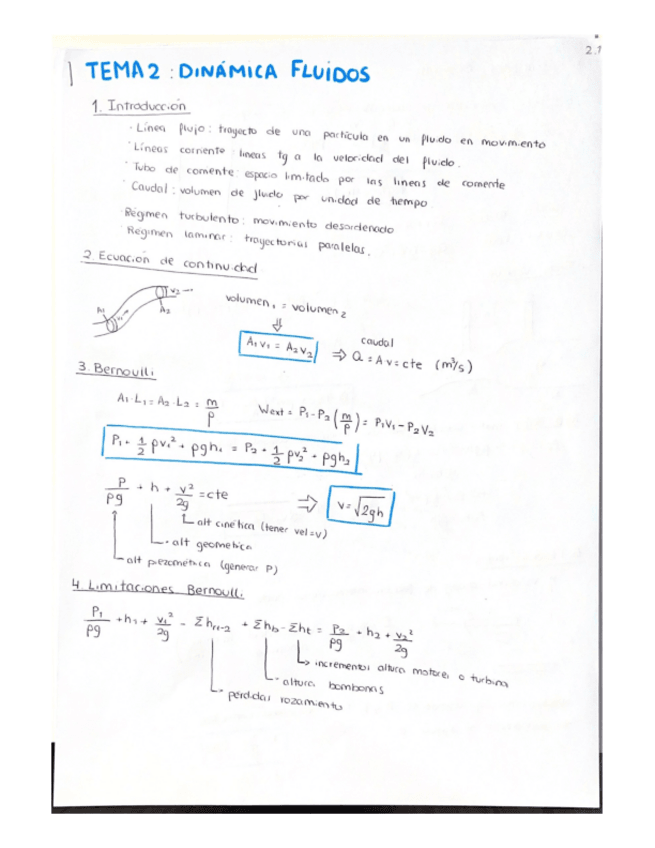 2.1
TEMA 2 : DINÁMICA FLUIDOS
1. Introducción
· Línea flujo : trayecto de una partícula en un fluido en movimiento
· Líneas corriente : lineas tg a la velocidad del fluido.
· Tubo de corriente : espacio limitado por las lineas de corriente
· Caudal : volumen de fluido por unidad de tiempo
Régimen turbulento : movimiento desordenado
Régimen laminar : trayectorias paralelas.
2. Ecuación de continuidad
A1 v1 v2 A2
volumen₁ = volumen₂
⇓
A₁v₁ = A₂v₂ ⇒ Q = A v = cte (m³/s)
caudal
3. Bernoulli
A₁·L₁ = A₂·L₂ = m/ρ
Wext = P₁-P₂ (m/ρ) = P₁V₁ - P₂V₂
P₁ + 1/2 ρv₁² + ρgh₁ = P₂ + 1/2 ρv₂² + ρgh₂
P/ρg + h + v²/2g = cte ⇒ v = √2gh
alt cinética (tener vel=v)
alt geometrica
alt piezométrica (generar P)
4. Limitaciones Bernoulli
P₁/ρg + h₁ + v₁²/2g - Σhr₁₋₂ + Σhb - Σht = P₂/ρg + h₂ + v₂²/2g
incrementos altura motores o turbina
altura bombonas
perdidas rozamiento